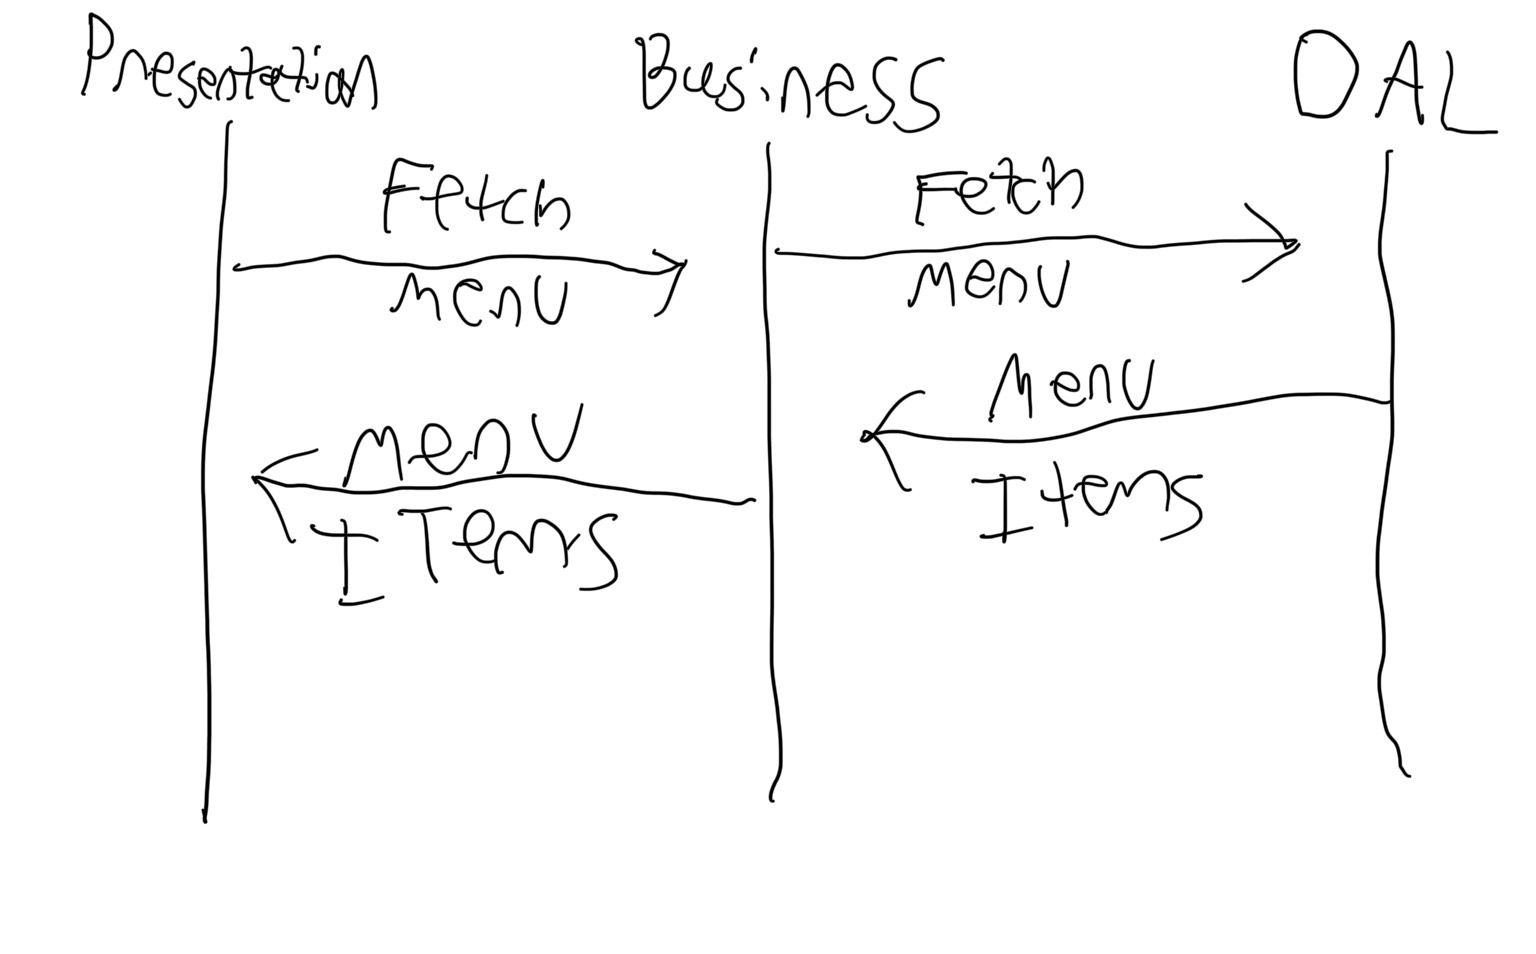 Presentation
Business
DAL
Fetch
Menu
Fetch
Menu
Menu
Items
Menu
ITems